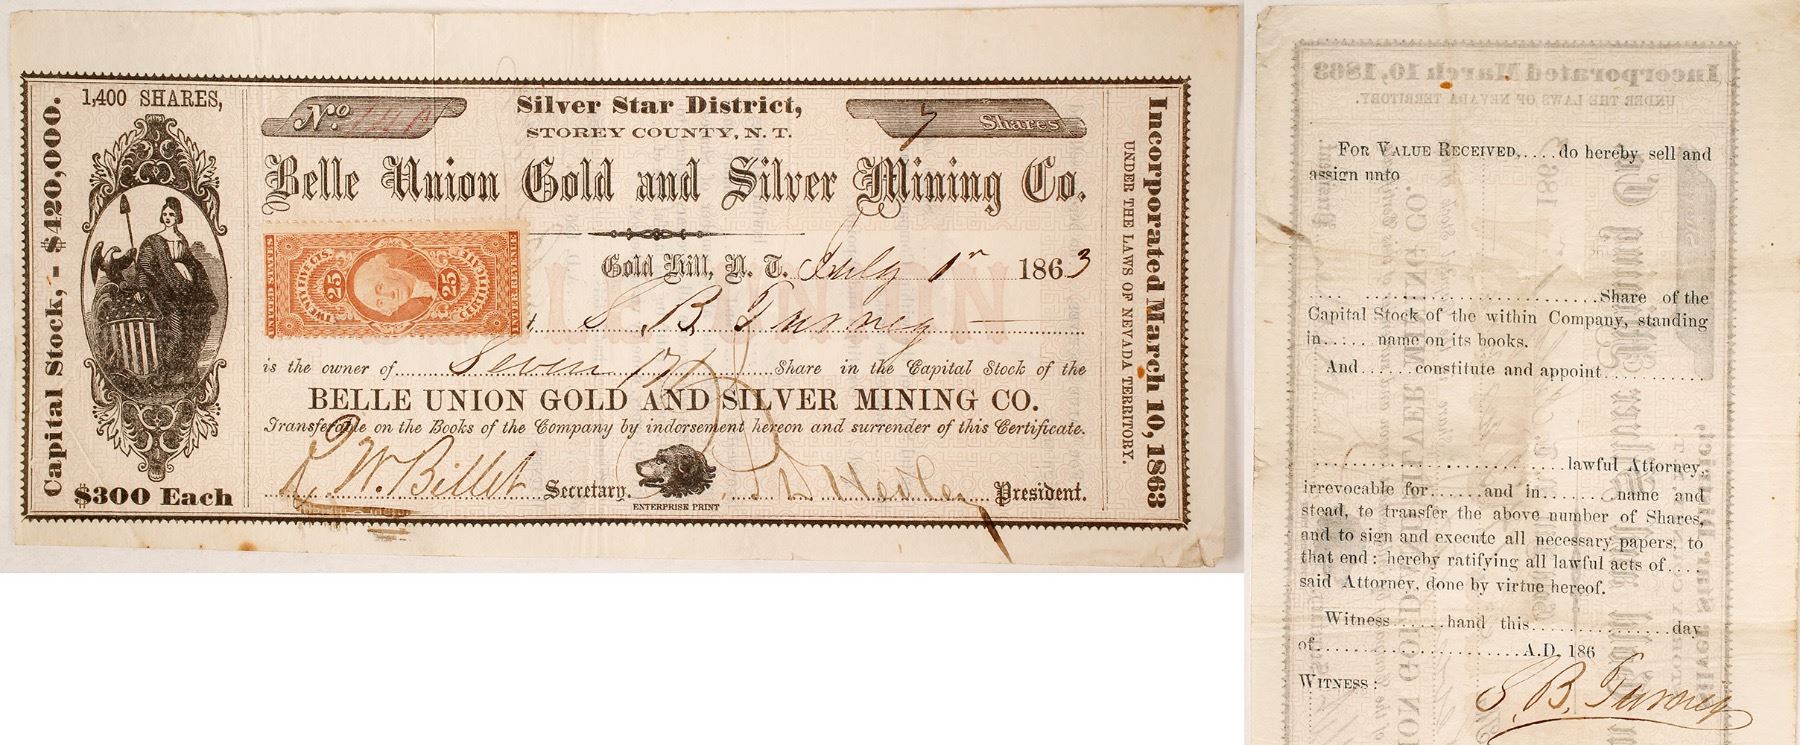 Capital Stock,- $420,000.
1,400 SHARES,
$300 Each
No.
Silver Star District,
STOREY COUNTY, N. T.
7 Shares
Belle Union Gold and Silver Mining Co.
UNITED STATES
25 25
INTER. REVENUE
Gold Hill, N. T. July 1st 1863
S B Turney
is the owner of Seven Share in the Capital Stock of the
BELLE UNION GOLD AND SILVER MINING CO.
Transferable on the Books of the Company by indorsement hereon and surrender of this Certificate.
W. Billet Secretary. President.
ENTERPRISE PRINT
Incorporated March 10, 1863
UNDER THE LAWS OF NEVADA TERRITORY.
FOR VALUE RECEIVED,....do hereby sell and
assign unto
Share of the
Capital Stock of the within Company, standing
in......name on its books.
And......constitute and appoint
lawful Attorney,
irrevocable for......and in.......name and
stead, to transfer the above number of Shares,
and to sign and execute all necessary papers, to
that end: hereby ratifying all lawful acts of....
said Attorney, done by virtue hereof.
Witness......hand this..............day
of.....................A.D. 186
WITNESS:
S. B. Turney